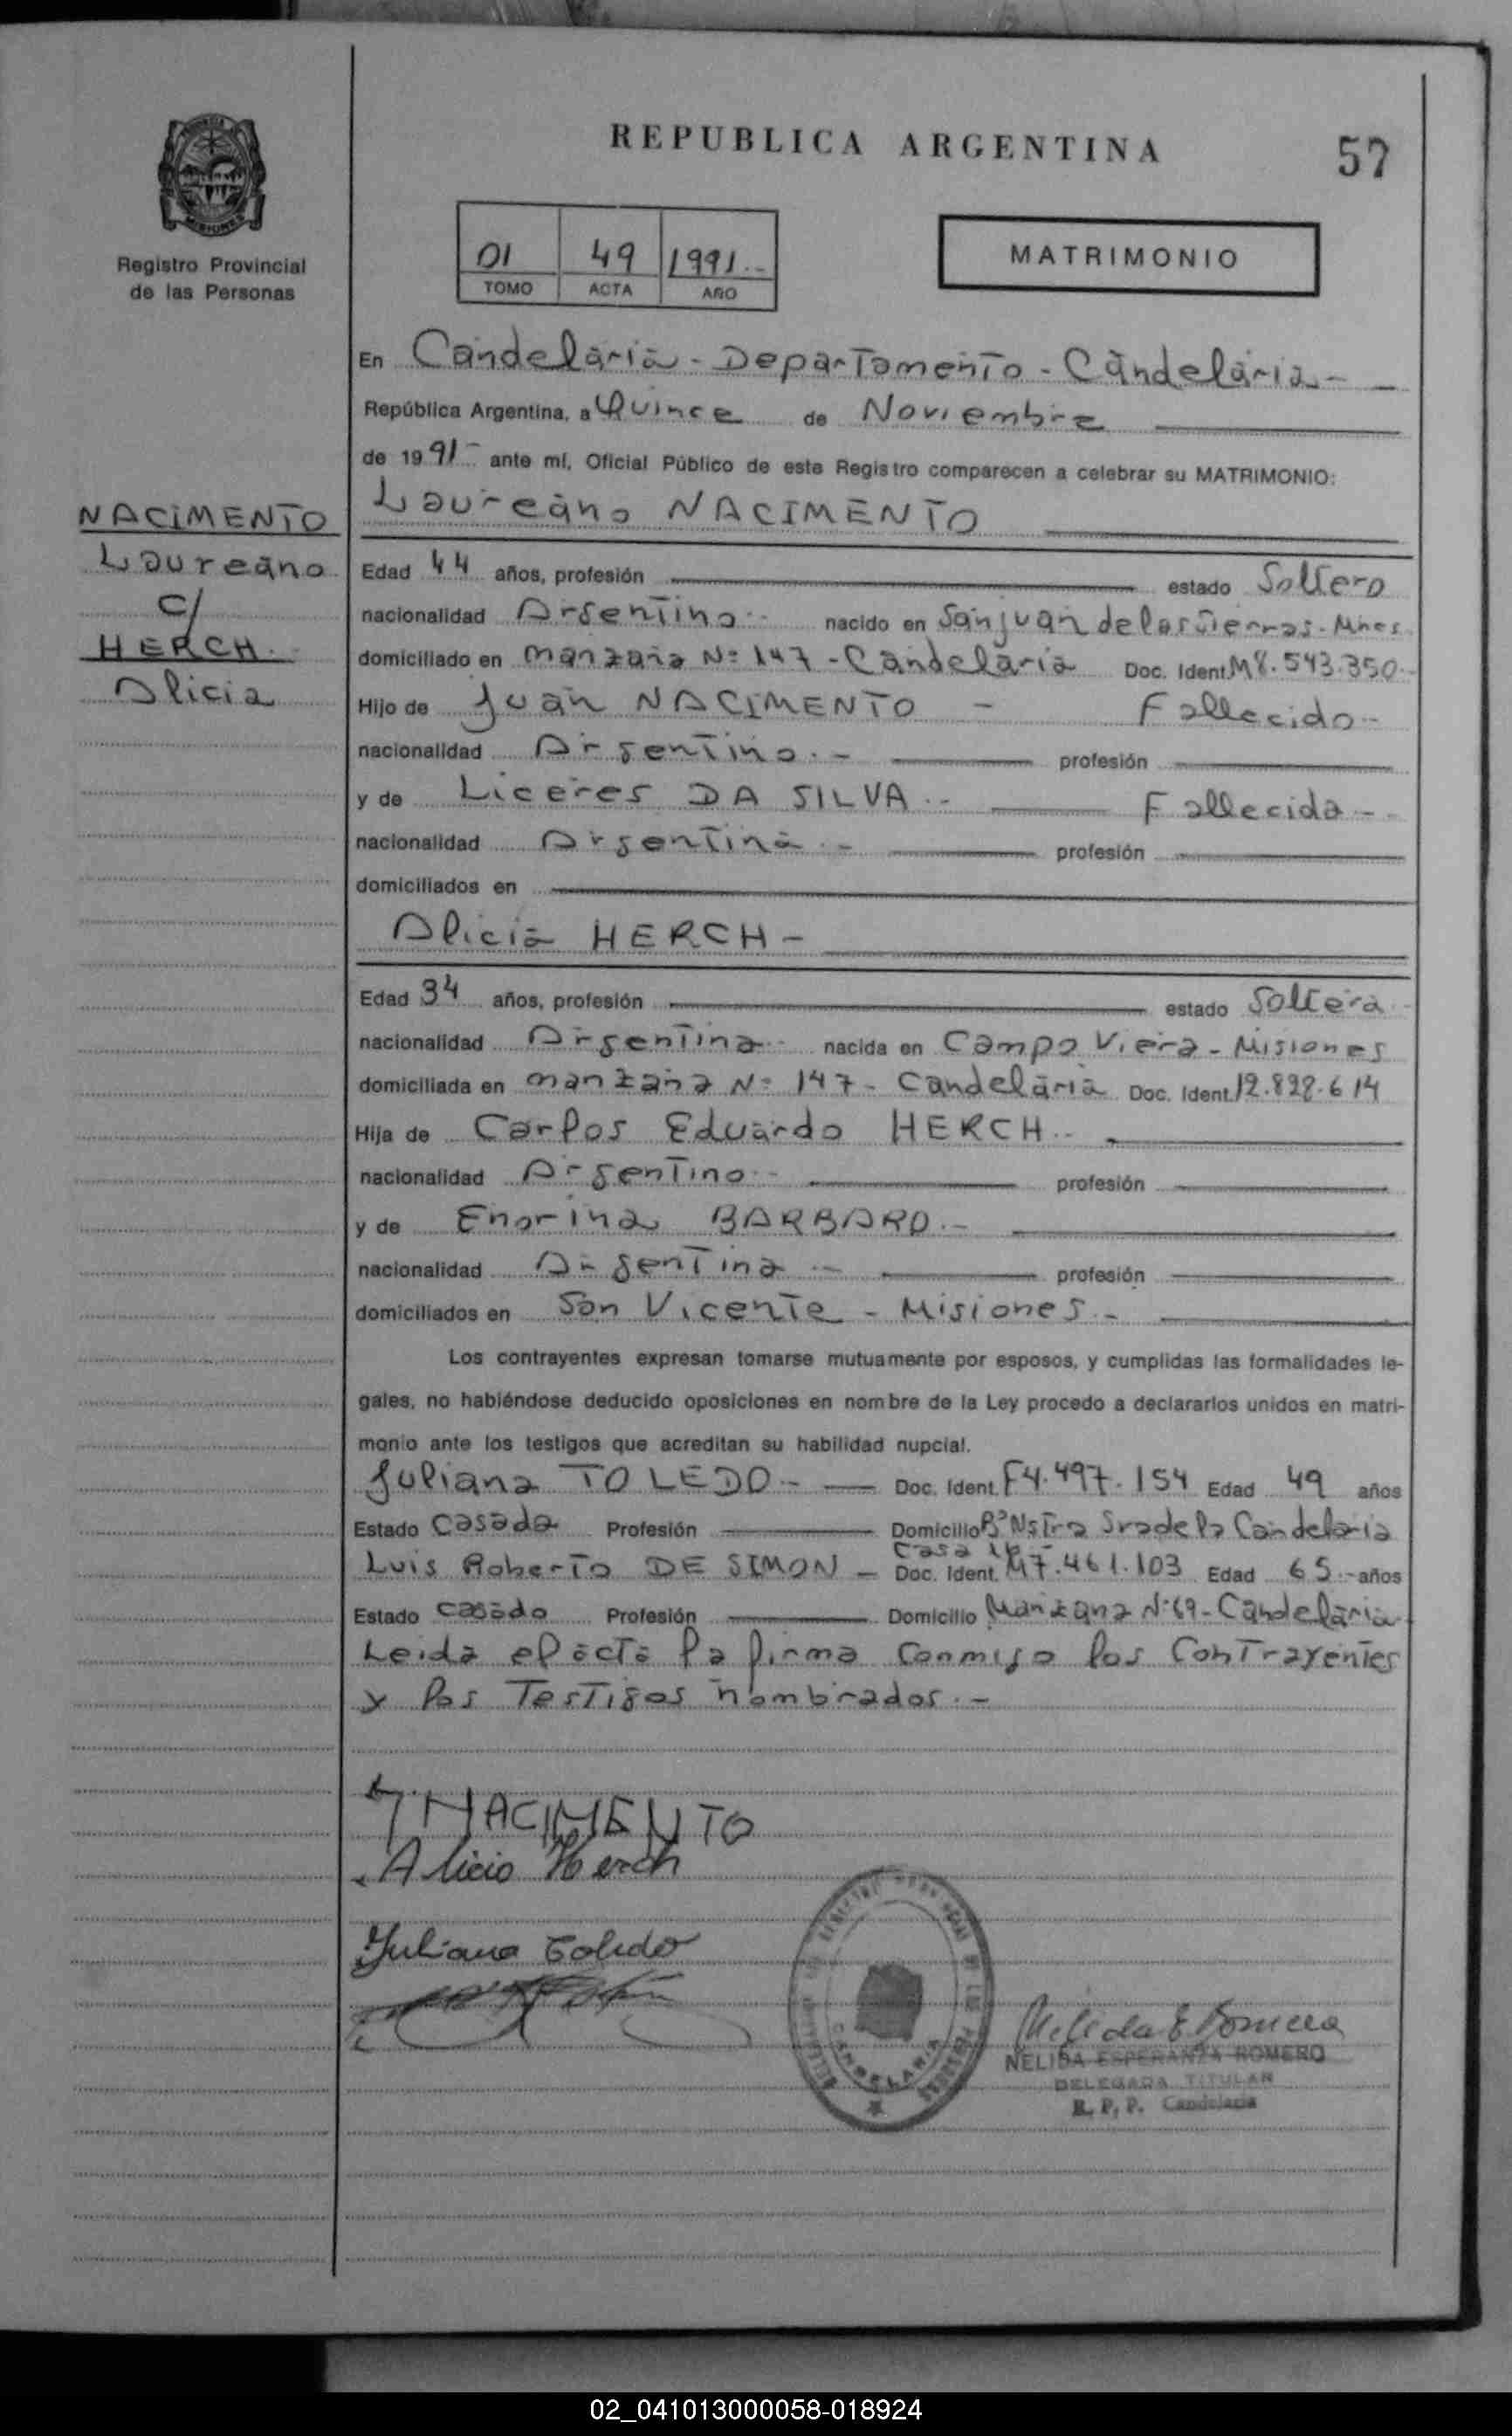 REPUBLICA ARGENTINA
57
Registro Provincial
de las Personas
01 49 1991
TOMO ACTA AÑO
MATRIMONIO
En Candelaria - Departamento - Candelaria -
República Argentina, a Quince de Noviembre
de 1991 ante mí, Oficial Público de este Registro comparecen a celebrar su MATRIMONIO:
NACIMENTO
Laureano
c/
HERCH.
Alicia
Laureano NACIMENTO
Edad 44 años, profesión estado Soltero
nacionalidad Argentino nacido en San Juan de las Sierras - Mnes.
domiciliado en manzana Nº 147 - Candelaria Doc. Ident. M8.543.350
Hijo de Juan NACIMENTO - Fallecido -
nacionalidad Argentino. - profesión
y de Liceres DA SILVA - Fallecida -
nacionalidad Argentina. - profesión
domiciliados en
Alicia HERCH -
Edad 34 años, profesión estado Soltera
nacionalidad Argentina nacida en Campo Viera - Misiones
domiciliada en manzana Nº 147 - Candelaria Doc. Ident. 12.828.614
Hija de Carlos Eduardo HERCH
nacionalidad Argentino profesión
y de Enorina BARBARO. -
nacionalidad Argentina - profesión
domiciliados en San Vicente - Misiones. -
Los contrayentes expresan tomarse mutuamente por esposos, y cumplidas las formalidades le-
gales, no habiéndose deducido oposiciones en nombre de la Ley procedo a declararlos unidos en matri-
monio ante los testigos que acreditan su habilidad nupcial.
Juliana TOLEDO - Doc. Ident. F4.497.154 Edad 49 años
Estado Casada Profesión Domicilio Bº Nstra Sra de la Candelaria
Casa
Luis Roberto DE SIMON - Doc. Ident. M7.461.103 Edad 65 años
Estado casado Profesión Domicilio Manzana Nº 69 - Candelaria
Leida el acta la firma conmigo los Contrayentes
y los Testigos nombrados. -
NACIMENTO
Alicia Herch
Juliana Toledo
CANDELARIA
Nelida E Romero
NELIDA ESPERANZA ROMERO
DELEGADA TITULAR
R. P. P. Candelaria
02_041013000058-018924